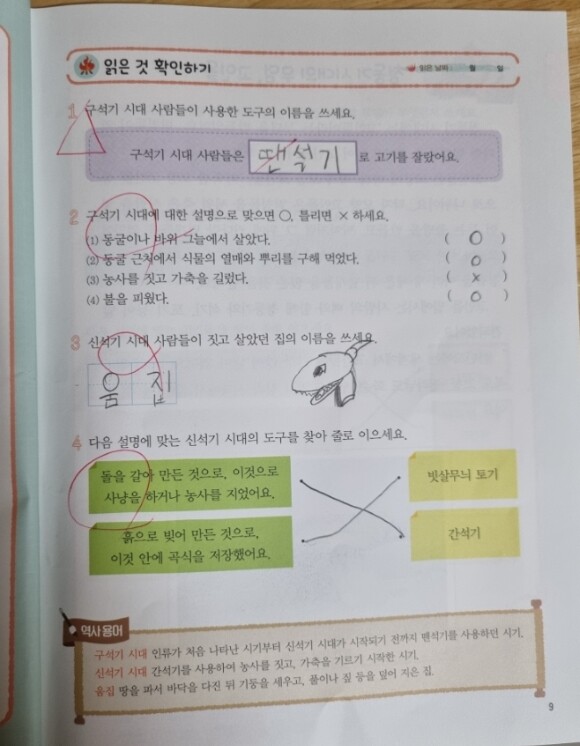 읽은 것 확인하기
읽은 날짜 월 일
1 구석기 시대 사람들이 사용한 도구의 이름을 쓰세요.
구석기 시대 사람들은 땐석기 로 고기를 잘랐어요.
2 구석기 시대에 대한 설명으로 맞으면 ○, 틀리면 × 하세요.
(1) 동굴이나 바위 그늘에서 살았다. ( ○ )
(2) 동굴 근처에서 식물의 열매와 뿌리를 구해 먹었다. ( ○ )
(3) 농사를 짓고 가축을 길렀다. ( × )
(4) 불을 피웠다. ( ○ )
3 신석기 시대 사람들이 짓고 살았던 집의 이름을 쓰세요.
움 집
4 다음 설명에 맞는 신석기 시대의 도구를 찾아 줄로 이으세요.
돌을 갈아 만든 것으로, 이것으로
사냥을 하거나 농사를 지었어요.
빗살무늬 토기
흙으로 빚어 만든 것으로,
이것 안에 곡식을 저장했어요.
간석기
역사 용어
구석기 시대 인류가 처음 나타난 시기부터 신석기 시대가 시작되기 전까지 뗀석기를 사용하던 시기.
신석기 시대 간석기를 사용하여 농사를 짓고, 가축을 기르기 시작한 시기.
움집 땅을 파서 바닥을 다진 뒤 기둥을 세우고, 풀이나 짚 등을 덮어 지은 집.
9